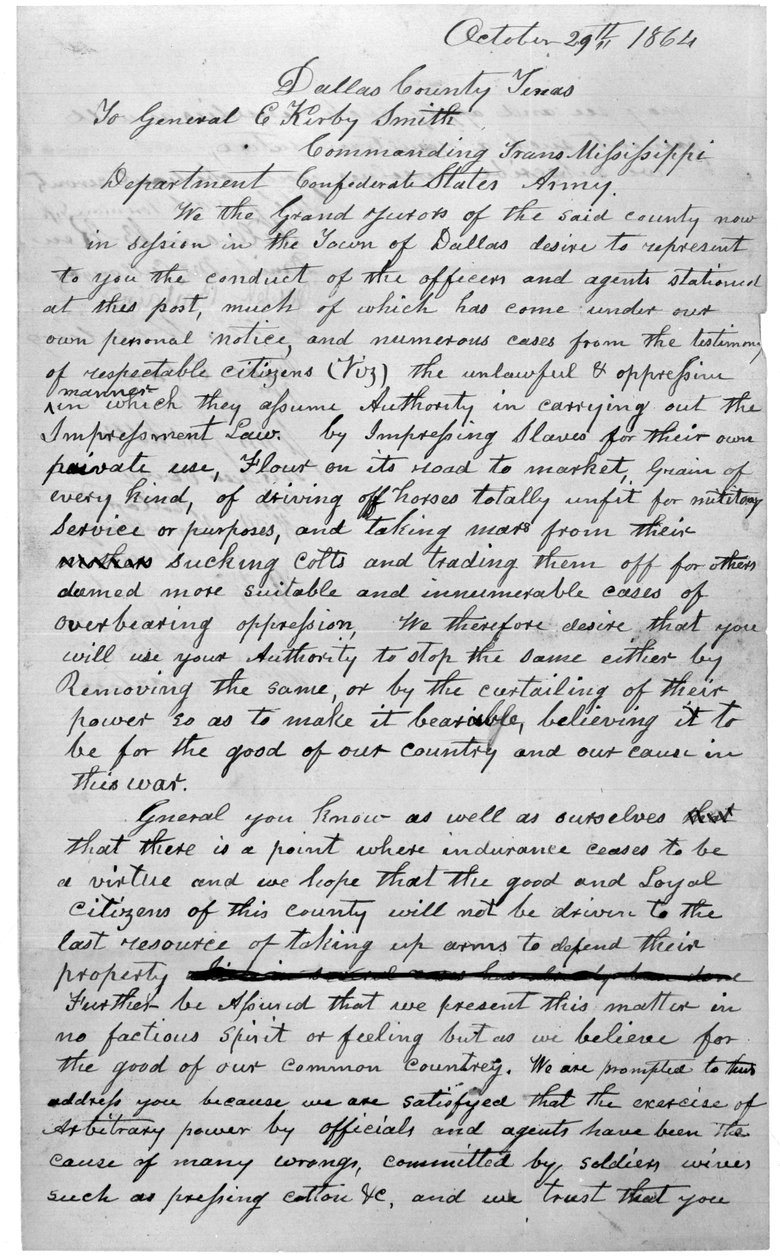 October 29th 1864
Dallas County Texas
To General E Kirby Smith
Commanding Trans Mississippi
Department Confederate States Army.
We the Grand Jurors of the said county now
in session in the Town of Dallas desire to represent
to you the conduct of the officers and agents stationed
at this post, much of which has come under our
own personal notice, and numerous cases from the testimony
of respectable citizens (Viz) the unlawful & oppressive
manner
in which they assume Authority in carrying out the
Impressment Law. by Impressing Slaves for their own
private use, Flour on its road to market, Grain of
every kind, of driving off horses totally unfit for military
Service or purposes, and taking mars from their
sucking Colts and trading them off for others
deemed more suitable and innumerable cases of
overbearing oppression, We therefore desire that you
will use your Authority to stop the same either by
Removing the same, or by the curtailing of their
power so as to make it bearible, believing it to
be for the good of our country and our cause in
this war.
Gneral you know as well as ourselves that
that there is a point where indurance ceases to be
a virtue and we hope that the good and Loyal
Citizens of this county will not be driven to the
last resource of taking up arms to defend their
property
Further be Assured that we present this matter in
no factious Spirit or feeling but as we believe for
the good of our common countrey. We are prompted to thus
address you because we are satisfyed that the exercise of
Arbitrary power by officials and agents have been the
cause of many wrongs, committed by soldiers wives
such as pressing cotton &c, and we trust that you